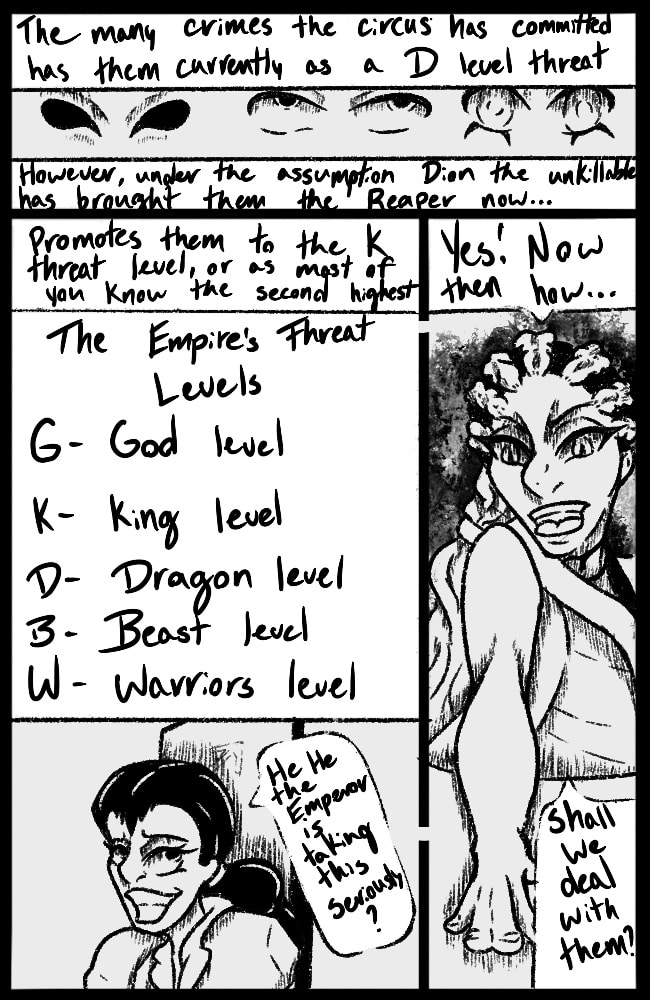 The many crimes the circus has committed
has them currently as a D level threat
However, under the assumption Dion the unkillable
has brought them the Reaper now...
Promotes them to the K
threat level, or as most of
you know the second highest
The Empire's Threat
Levels
G- God level
K- King level
D- Dragon level
B- Beast level
W- Warriors level
He He
the
Emperor
is
taking
this
seriously
?
Yes! Now
then how...
Shall
we
deal
with
them?